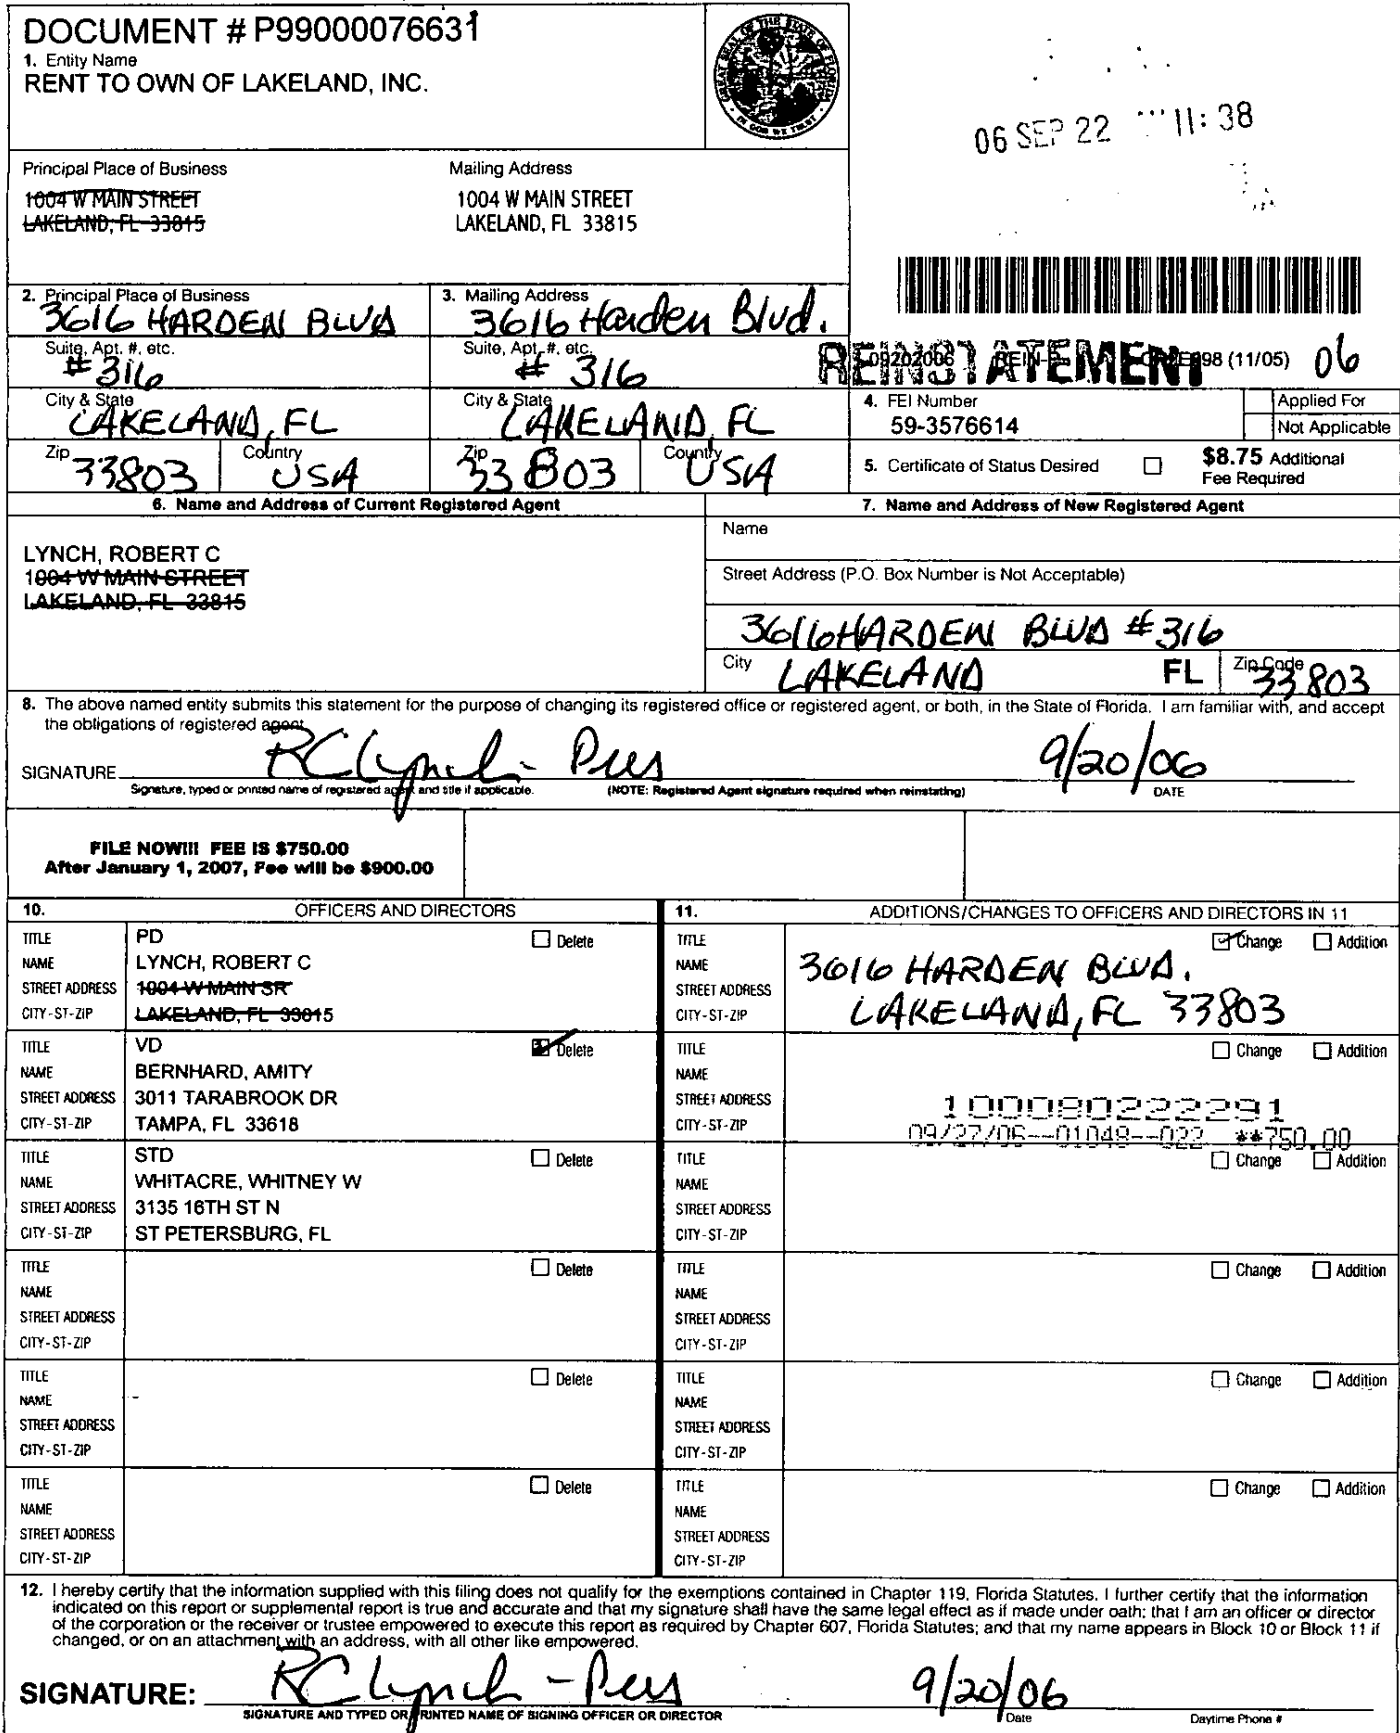 DOCUMENT # P99000076631
1. Entity Name
RENT TO OWN OF LAKELAND, INC.
GREAT SEAL OF THE STATE OF FLORIDA
IN GOD WE TRUST
06 SEP 22 11:38
Principal Place of Business
1004 W MAIN STREET
LAKELAND, FL 33815
Mailing Address
1004 W MAIN STREET
LAKELAND, FL 33815
2. Principal Place of Business
3616 HARDEN BLVD
Suite, Apt. #, etc.
# 316
City & State
LAKELAND, FL
Zip
33803
Country
USA
3. Mailing Address
3616 Harden Blvd.
Suite, Apt. #, etc.
# 316
City & State
LAKELAND, FL
Zip
33803
Country
USA
REINSTATEMENT
09202006 REIN-P 098 (11/05) 06
4. FEI Number
59-3576614
Applied For
Not Applicable
5. Certificate of Status Desired
$8.75 Additional
Fee Required
6. Name and Address of Current Registered Agent
LYNCH, ROBERT C
1004 W MAIN STREET
LAKELAND, FL 33815
7. Name and Address of New Registered Agent
Name
Street Address (P.O. Box Number is Not Acceptable)
3616 HARDEN BLVD #316
City LAKELAND FL Zip Code 33803
8. The above named entity submits this statement for the purpose of changing its registered office or registered agent, or both, in the State of Florida. I am familiar with, and accept
the obligations of registered agent.
SIGNATURE RC Lynch - Pres 9/20/06
Signature, typed or printed name of registered agent and title if applicable. (NOTE: Registered Agent signature required when reinstating) DATE
FILE NOW!!! FEE IS $750.00
After January 1, 2007, Fee will be $900.00
10. OFFICERS AND DIRECTORS
TITLE PD Delete
NAME LYNCH, ROBERT C
STREET ADDRESS 1004 W MAIN SR
CITY-ST-ZIP LAKELAND, FL 33815
TITLE VD Delete
NAME BERNHARD, AMITY
STREET ADDRESS 3011 TARABROOK DR
CITY-ST-ZIP TAMPA, FL 33618
TITLE STD Delete
NAME WHITACRE, WHITNEY W
STREET ADDRESS 3135 16TH ST N
CITY-ST-ZIP ST PETERSBURG, FL
TITLE Delete
NAME
STREET ADDRESS
CITY-ST-ZIP
TITLE Delete
NAME
STREET ADDRESS
CITY-ST-ZIP
TITLE Delete
NAME
STREET ADDRESS
CITY-ST-ZIP
11. ADDITIONS/CHANGES TO OFFICERS AND DIRECTORS IN 11
TITLE Change Addition
NAME 3616 HARDEN BLVD.
STREET ADDRESS LAKELAND, FL 33803
CITY-ST-ZIP
TITLE Change Addition
NAME
STREET ADDRESS 100080222291
CITY-ST-ZIP 09/27/06--01048--022 **750.00
TITLE Change Addition
NAME
STREET ADDRESS
CITY-ST-ZIP
TITLE Change Addition
NAME
STREET ADDRESS
CITY-ST-ZIP
TITLE Change Addition
NAME
STREET ADDRESS
CITY-ST-ZIP
TITLE Change Addition
NAME
STREET ADDRESS
CITY-ST-ZIP
12. I hereby certify that the information supplied with this filing does not qualify for the exemptions contained in Chapter 119, Florida Statutes. I further certify that the information
indicated on this report or supplemental report is true and accurate and that my signature shall have the same legal effect as if made under oath; that I am an officer or director
of the corporation or the receiver or trustee empowered to execute this report as required by Chapter 607, Florida Statutes; and that my name appears in Block 10 or Block 11 if
changed, or on an attachment with an address, with all other like empowered.
SIGNATURE: RC Lynch - Pres 9/20/06
SIGNATURE AND TYPED OR PRINTED NAME OF SIGNING OFFICER OR DIRECTOR Date Daytime Phone #